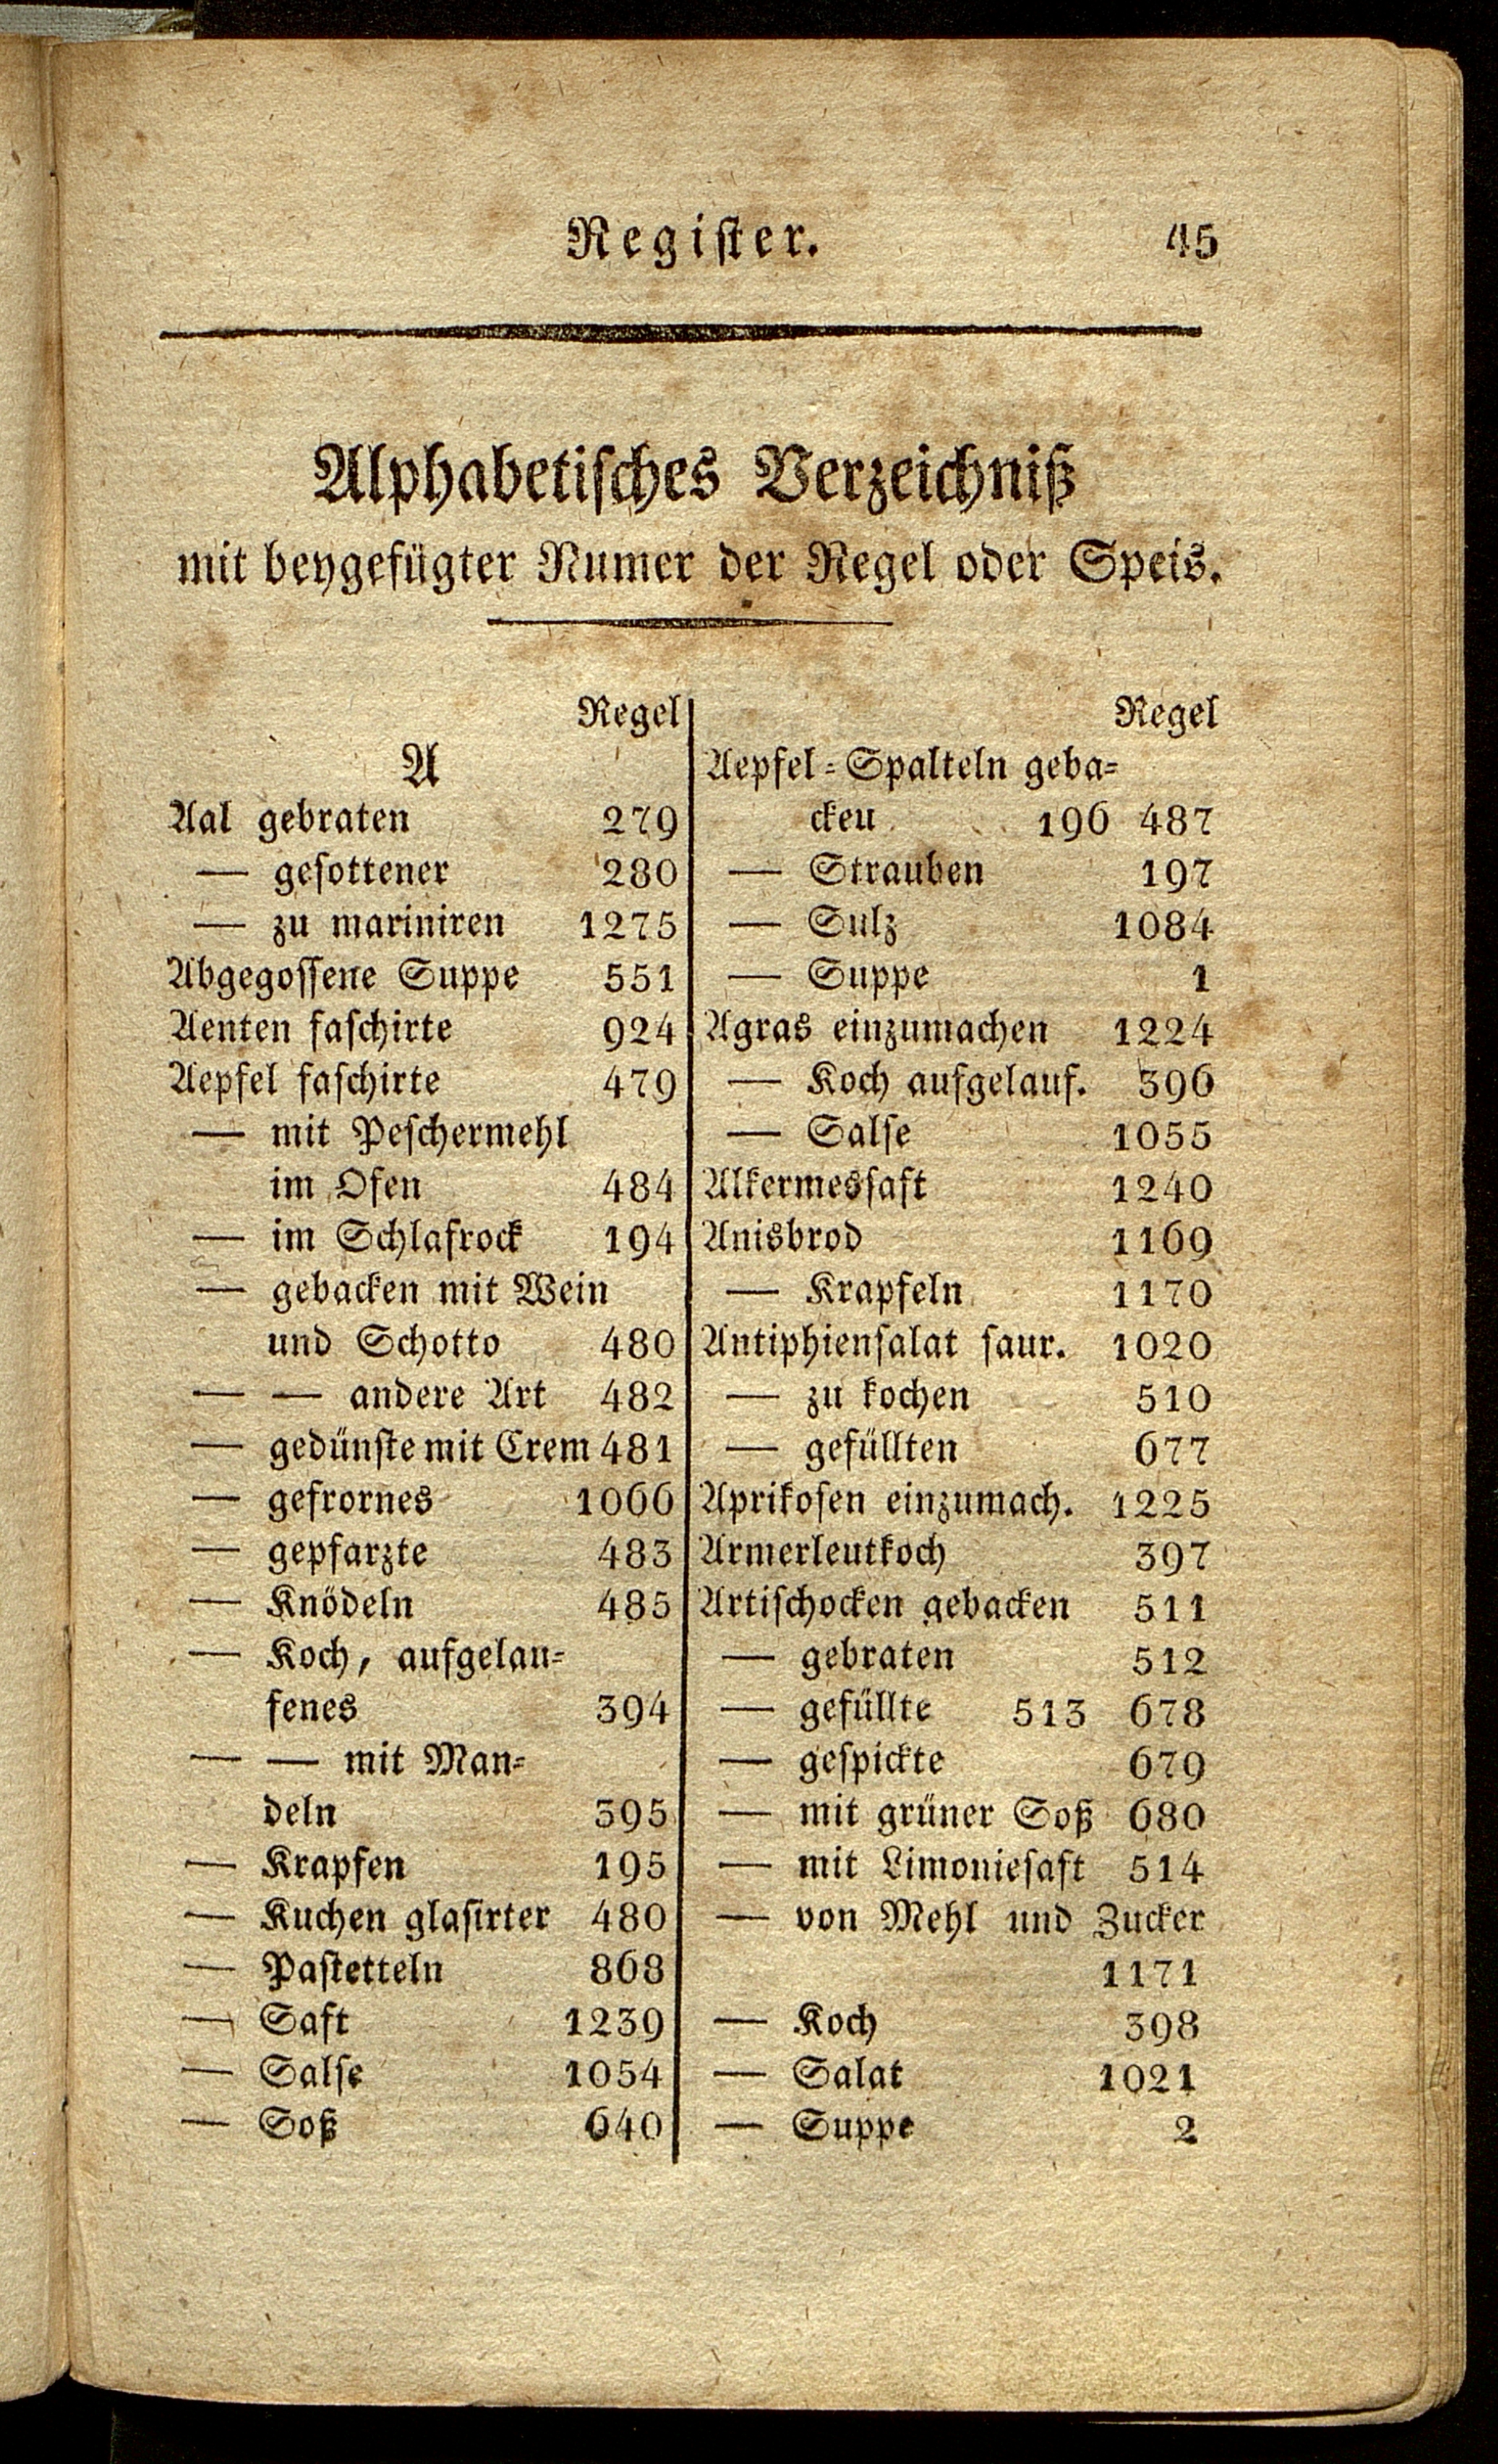 Register. 45
Alphabetisches Verzeichniß
mit beygefügter Numer der Regel oder Speis.
Regel
A
Aal gebraten 279
— gesottener 280
— zu mariniren 1275
Abgegossene Suppe 551
Aenten faschirte 924
Aepfel faschirte 479
— mit Peschermehl
im Ofen 484
— im Schlafrock 194
— gebacken mit Wein
und Schotto 480
— — andere Art 482
— gedünste mit Crem 481
— gefrornes 1066
— gepfarzte 483
— Knödeln 485
— Koch, aufgelau-
fenes 394
— — mit Man-
deln 395
— Krapfen 195
— Kuchen glasirter 480
— Pastetteln 868
— Saft 1239
— Salse 1054
— Soß 640
Regel
Aepfel-Spalteln geba-
cken 196 487
— Strauben 197
— Sulz 1084
— Suppe 1
Agras einzumachen 1224
— Koch aufgelauf. 396
— Salse 1055
Alkermessaft 1240
Anisbrod 1169
— Krapfeln 1170
Antiphiensalat saur. 1020
— zu kochen 510
— gefüllten 677
Aprikosen einzumach. 1225
Armerleutkoch 397
Artischocken gebacken 511
— gebraten 512
— gefüllte 513 678
— gespickte 679
— mit grüner Soß 680
— mit Limoniesaft 514
— von Mehl und Zucker
1171
— Koch 398
— Salat 1021
— Suppe 2